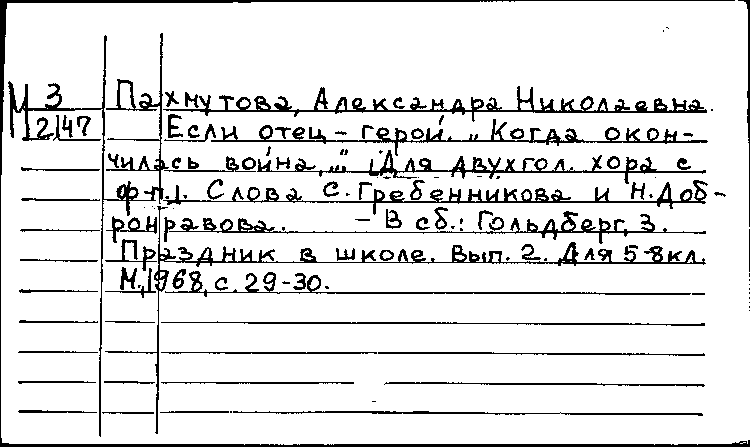 М 3 Пахмутова, Александра Николаевна.
2147 Если отец – герой. „Когда окон-
чилась война,..." [Для двухгол. хора с
ф-п.]. Слова С. Гребенникова и Н. Доб-
ронравова. – В сб.: Гольдберг, З.
Праздник в школе. Вып. 2. Для 5-8 кл.
М., 1968, с. 29-30.